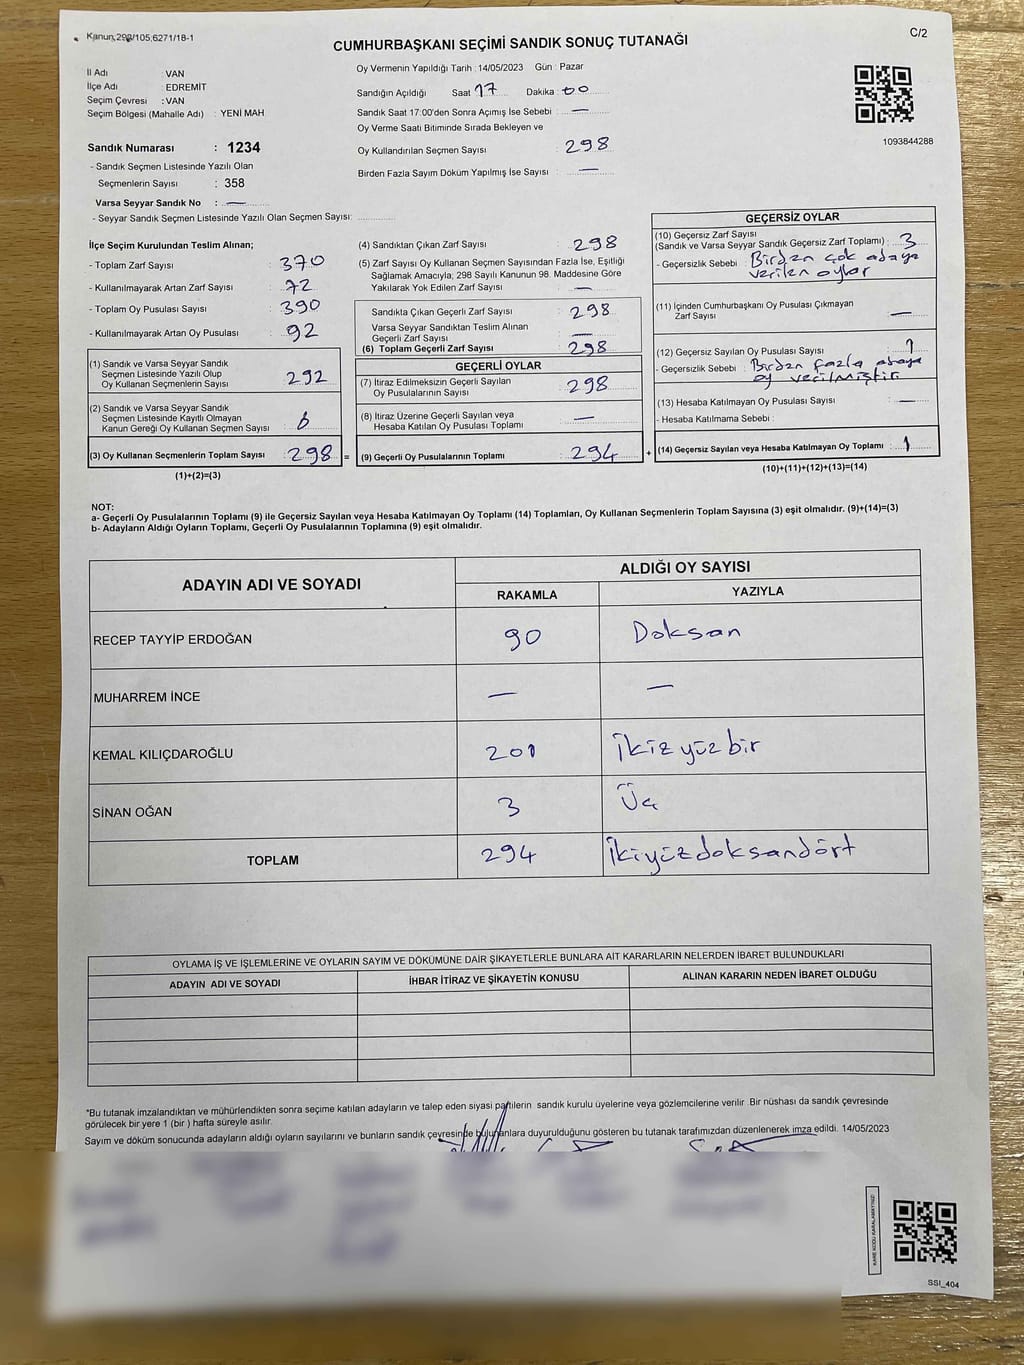 Kanun,298/105,6271/18-1
C/2
CUMHURBAŞKANI SEÇİMİ SANDIK SONUÇ TUTANAĞI
İl Adı : VAN
İlçe Adı : EDREMİT
Seçim Çevresi : VAN
Seçim Bölgesi (Mahalle Adı) : YENİ MAH
Sandık Numarası : 1234
- Sandık Seçmen Listesinde Yazılı Olan
Seçmenlerin Sayısı : 358
Varsa Seyyar Sandık No : —
- Seyyar Sandık Seçmen Listesinde Yazılı Olan Seçmen Sayısı:
Oy Vermenin Yapıldığı Tarih : 14/05/2023 Gün : Pazar
Sandığın Açıldığı Saat 17 Dakika : 00
Sandık Saat 17:00'den Sonra Açımış İse Sebebi : —
Oy Verme Saati Bitiminde Sırada Bekleyen ve
Oy Kullandırılan Seçmen Sayısı : 298
Birden Fazla Sayım Döküm Yapılmış İse Sayısı : —
1093844288
İlçe Seçim Kurulundan Teslim Alınan;
- Toplam Zarf Sayısı : 370
- Kullanılmayarak Artan Zarf Sayısı : 72
- Toplam Oy Pusulası Sayısı : 390
- Kullanılmayarak Artan Oy Pusulası : 92
(1) Sandık ve Varsa Seyyar Sandık
Seçmen Listesinde Yazılı Olup
Oy Kullanan Seçmenlerin Sayısı : 292
(2) Sandık ve Varsa Seyyar Sandık
Seçmen Listesinde Kayıtlı Olmayan
Kanun Gereği Oy Kullanan Seçmen Sayısı : 6
(3) Oy Kullanan Seçmenlerin Toplam Sayısı : 298 =
(1)+(2)=(3)
(4) Sandıktan Çıkan Zarf Sayısı : 298
(5) Zarf Sayısı Oy Kullanan Seçmen Sayısından Fazla İse, Eşitliği
Sağlamak Amacıyla, 298 Sayılı Kanunun 98. Maddesine Göre
Yakılarak Yok Edilen Zarf Sayısı : —
Sandıkta Çıkan Geçerli Zarf Sayısı : 298
Varsa Seyyar Sandıktan Teslim Alınan
Geçerli Zarf Sayısı : —
(6) Toplam Geçerli Zarf Sayısı : 298
GEÇERLİ OYLAR
(7) İtiraz Edilmeksizin Geçerli Sayılan
Oy Pusulalarının Sayısı : 298
(8) İtiraz Üzerine Geçerli Sayılan veya
Hesaba Katılan Oy Pusulası Toplamı : —
(9) Geçerli Oy Pusulalarının Toplamı : 294 +
GEÇERSİZ OYLAR
(10) Geçersiz Zarf Sayısı
(Sandık ve Varsa Seyyar Sandık Geçersiz Zarf Toplamı) : 3
- Geçersizlik Sebebi : Birden çok adaya
verilen oylar
(11) İçinden Cumhurbaşkanı Oy Pusulası Çıkmayan
Zarf Sayısı : —
(12) Geçersiz Sayılan Oy Pusulası Sayısı : 1
- Geçersizlik Sebebi : Birden fazla adaya
oy verilmiştir
(13) Hesaba Katılmayan Oy Pusulası Sayısı : —
- Hesaba Katılmama Sebebi :
(14) Geçersiz Sayılan veya Hesaba Katılmayan Oy Toplamı : 1
(10)+(11)+(12)+(13)=(14)
NOT:
a- Geçerli Oy Pusulalarının Toplamı (9) ile Geçersiz Sayılan veya Hesaba Katılmayan Oy Toplamı (14) Toplamları, Oy Kullanan Seçmenlerin Toplam Sayısına (3) eşit olmalıdır. (9)+(14)=(3)
b- Adayların Aldığı Oyların Toplamı, Geçerli Oy Pusulalarının Toplamına (9) eşit olmalıdır.
ADAYIN ADI VE SOYADI
ALDIĞI OY SAYISI
RAKAMLA YAZIYLA
RECEP TAYYİP ERDOĞAN 90 Doksan
MUHARREM İNCE — —
KEMAL KILIÇDAROĞLU 201 İkizyüzbir
SİNAN OĞAN 3 Üç
TOPLAM 294 İkiyüzdoksandört
OYLAMA İŞ VE İŞLEMLERİNE VE OYLARIN SAYIM VE DÖKÜMÜNE DAİR ŞİKAYETLERLE BUNLARA AİT KARARLARIN NELERDEN İBARET BULUNDUKLARI
ADAYIN ADI VE SOYADI İHBAR İTİRAZ VE ŞİKAYETİN KONUSU ALINAN KARARIN NEDEN İBARET OLDUĞU
*Bu tutanak imzalandıktan ve mühürlendikten sonra seçime katılan adayların ve talep eden siyasi partilerin sandık kurulu üyelerine veya gözlemcilerine verilir .Bir nüshası da sandık çevresinde
görülecek bir yere 1 (bir ) hafta süreyle asılır.
Sayım ve döküm sonucunda adayların aldığı oyların sayılarını ve bunların sandık çevresinde bulunanlara duyurulduğunu gösteren bu tutanak tarafımızdan düzenlenerek imza edildi. 14/05/2023
KARE KODU KARALAMAYINIZ!
SSI_404